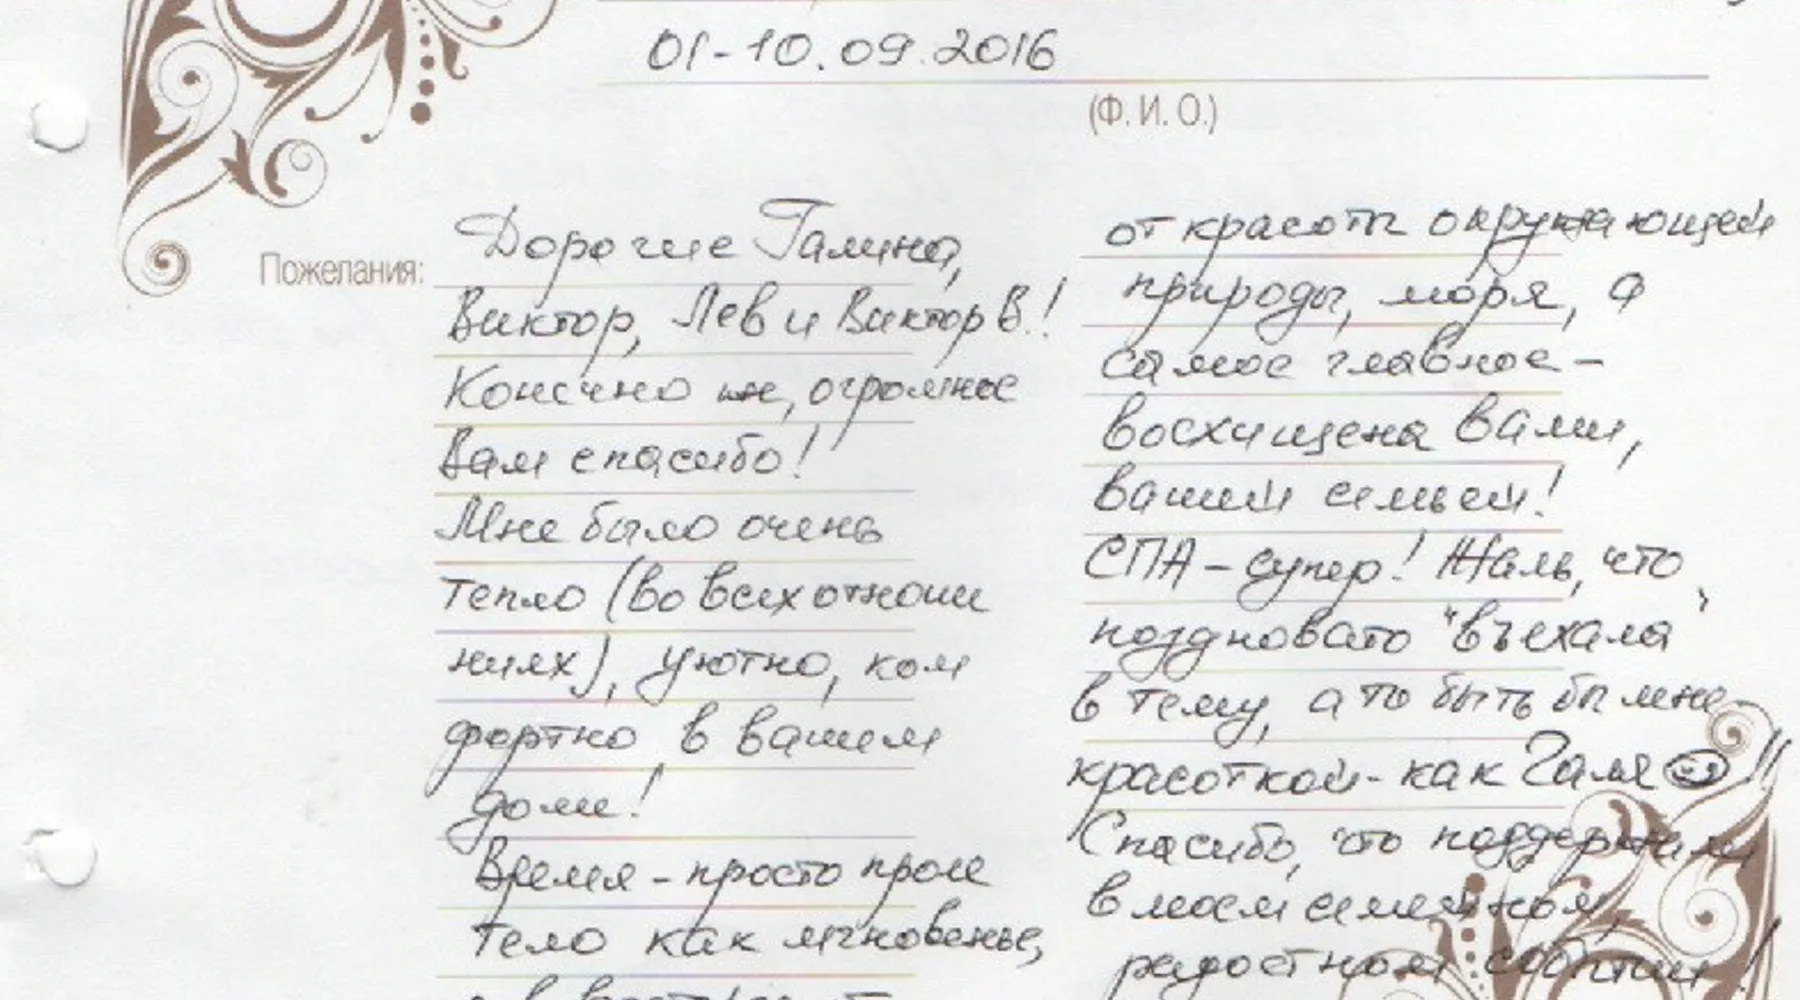 01-10.09.2016
(Ф. И. О.)
Пожелания:
Дорогие Галина,
Виктор, Лев и Виктор В.!
Конечно же, огромное
Вам спасибо!
Мне было очень
тепло (во всех отноше
ниях), уютно, ком
фортно в вашем
доме!
Время - просто проле
тело как мгновенье,
от красоты окружающей
природы, моря, а
самое главное -
восхищена вами,
вашей семьей!
СПА - супер! Жаль, что
поздновато "въехала"
в тему, а то быть бы мне
красоткой - как Галя!!
Спасибо, что поддержали
в моем семейном,
радостном событии!